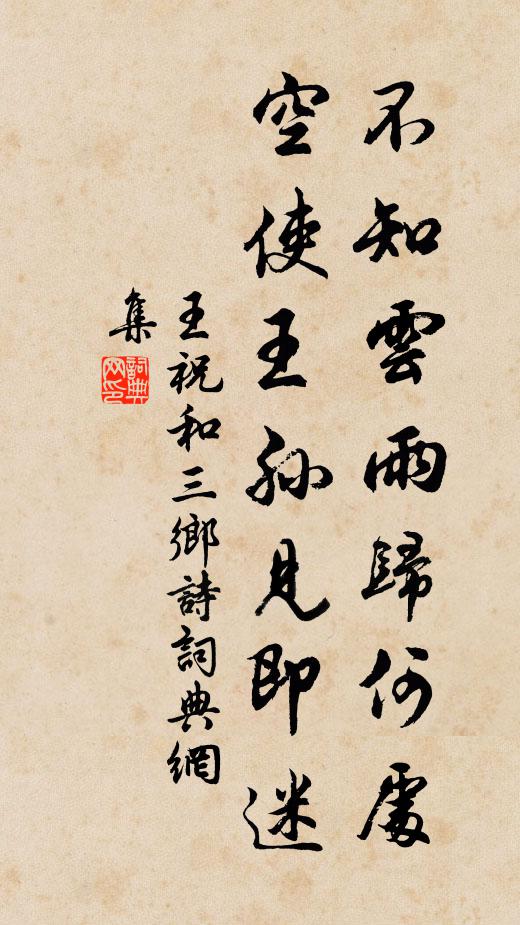 不知雲雨歸何處
空使王孫見即迷
王祝和三鄉詩詞典網
集
詞典网印